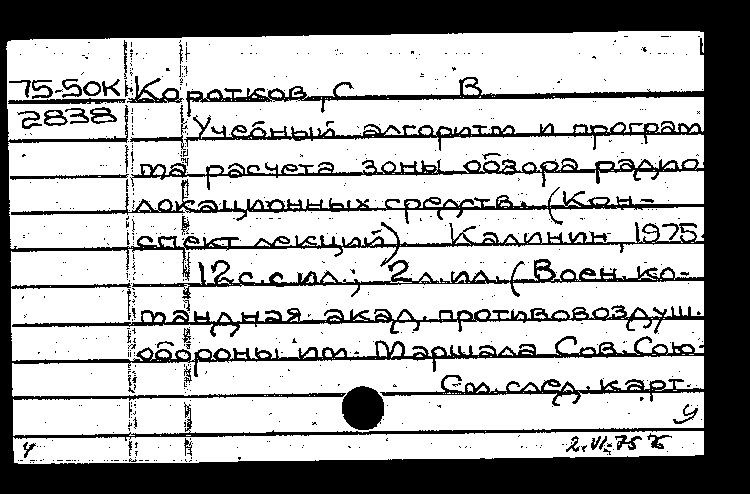 75-50К Коротков, С В
2838
Учебный алгоритм и програм
ма расчета зоны обзора радио
локационных средств. (Кон-
спект лекций). Калинин, 1975.
12с.с ил.; 2л.ил. (Воен. ко-
мандная акад. противовоздуш.
обороны им. Маршала Сов. Сою-
См. след. карт.
у
2.VI-75